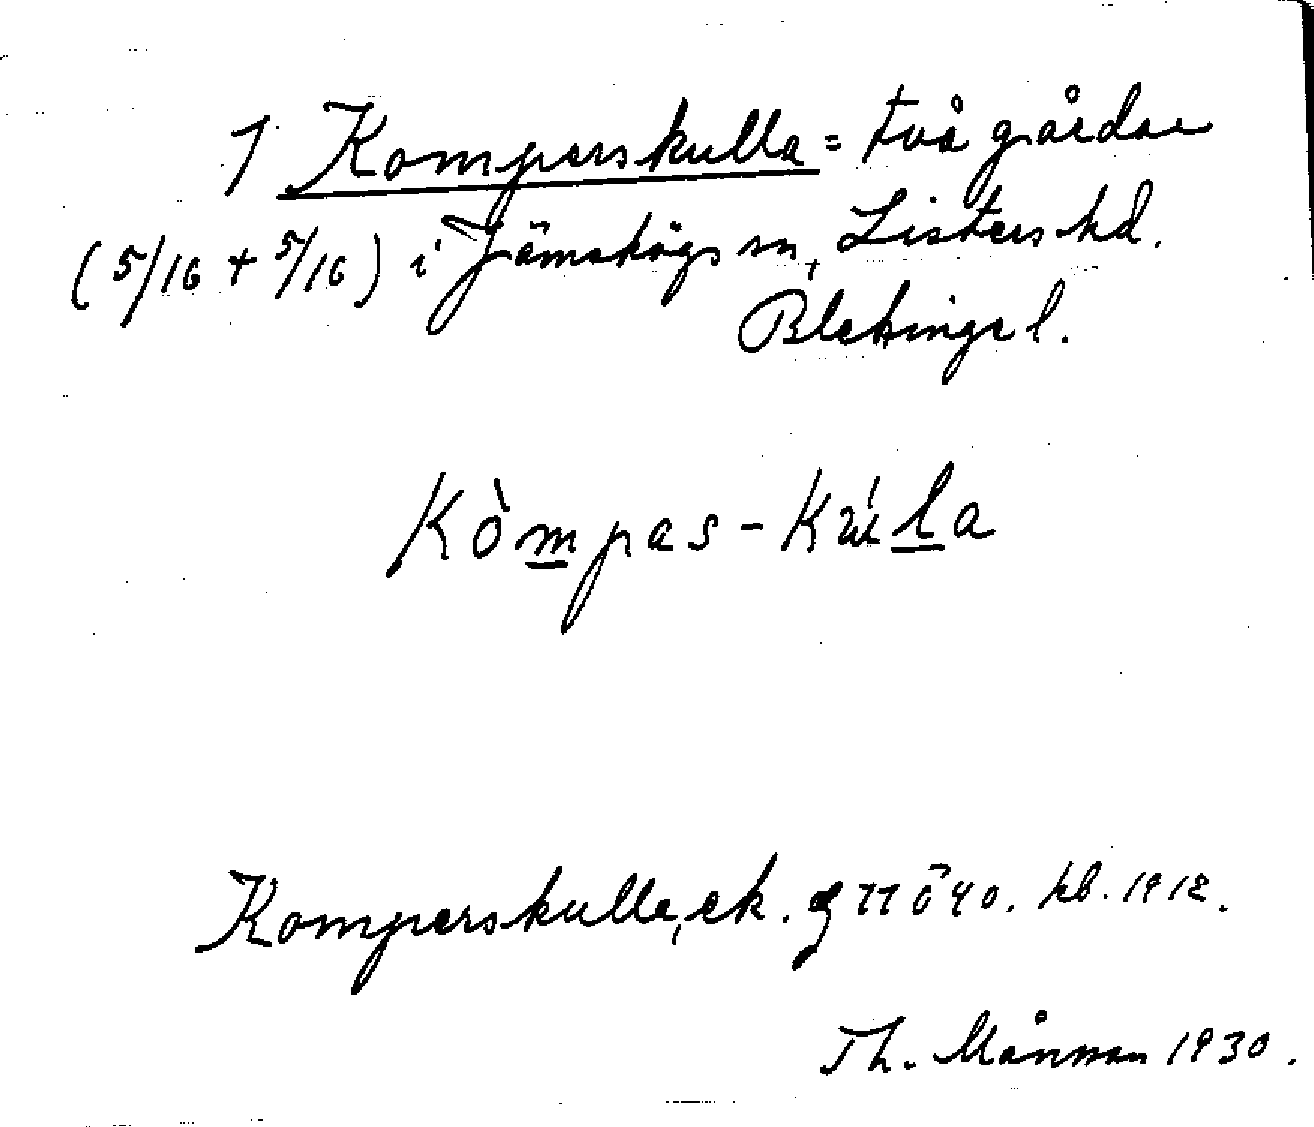 1 Komperskulla = två gårdar
(5/16 + 5/16) i Jämshögs sn, Listers hd.
Blekinge l.
Kòmpas-kúla
Komperskulla, ek. 1912.
Th. Månsson 1930.